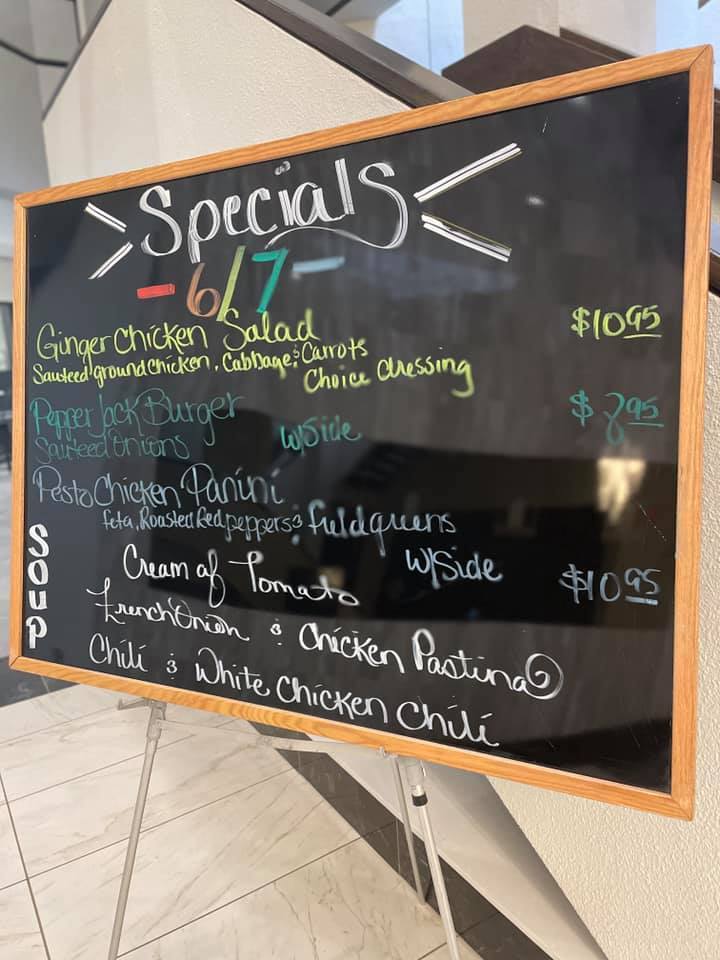 > Specials <
- 6/7 -
Ginger Chicken Salad $10.95
Sauteed ground chicken, Cabbage & Carrots
Choice dressing
Pepper Jack Burger $7.95
Sauteed Onions w/Side
Pesto Chicken Panini
feta, Roasted Red peppers & field greens
w/Side $10.95
Soup
Cream of Tomato
French Onion & Chicken Pastina
Chili & White Chicken Chili